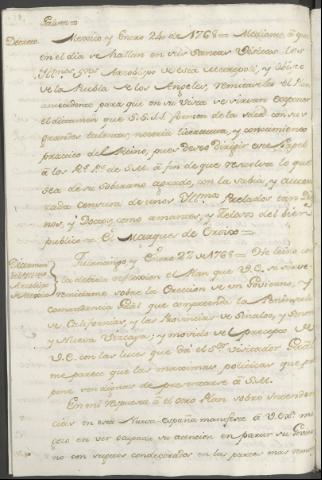 Decreto
Mexico y Enero 24 de 1768 = Mediante á que
en el dia se hallan en sus Santas Visitas los
Illmos. Sres. Arzobispo de esta Metropoli, y Obispo
de la Puebla de los Angeles, remitaseles el Plan
antecedente para que en su vista se sirvan exponer
el dictamen que S.S.S.I. formen de la salud con sus
grandes talentos, notoria literatura, y conocimiento
practico del Reino, pues devo dirigir este Papel
á los Rs. Ps. de S.M. á fin de que resuelva lo que
sea de su Soberano agrado, con la sabia, y
censura de unos Illmos. Prelados tan
nos, y Doctos, como amantes, y zelosos del bien
publico = El Marques de Croix =
Dictamen
Arzobispo
de Mexico
y Enero 27 de 1768 = He leido con
la devida reflexion el Plan que V.E. se sirve
remitirme sobre la Ereccion de un Govierno, y
Comandancia Gral. que comprenda la Peninsula
de Californias, y las Provincias de Sinaloa, y Sonora
y Nueva Vizcaya; y movido del precepto de
V.E. con las luces que dá el Sor. Visitador Gral.
me parece que las maximas politicas que pro
pone son dignas de presentarse á S.M.
En mi respuesta á el otro Plan sobre Intenden
cias en esta Nueva España manifesté á V.E.
en ver ocupada su atencion en
no con sugetos condecorados en las partes mas